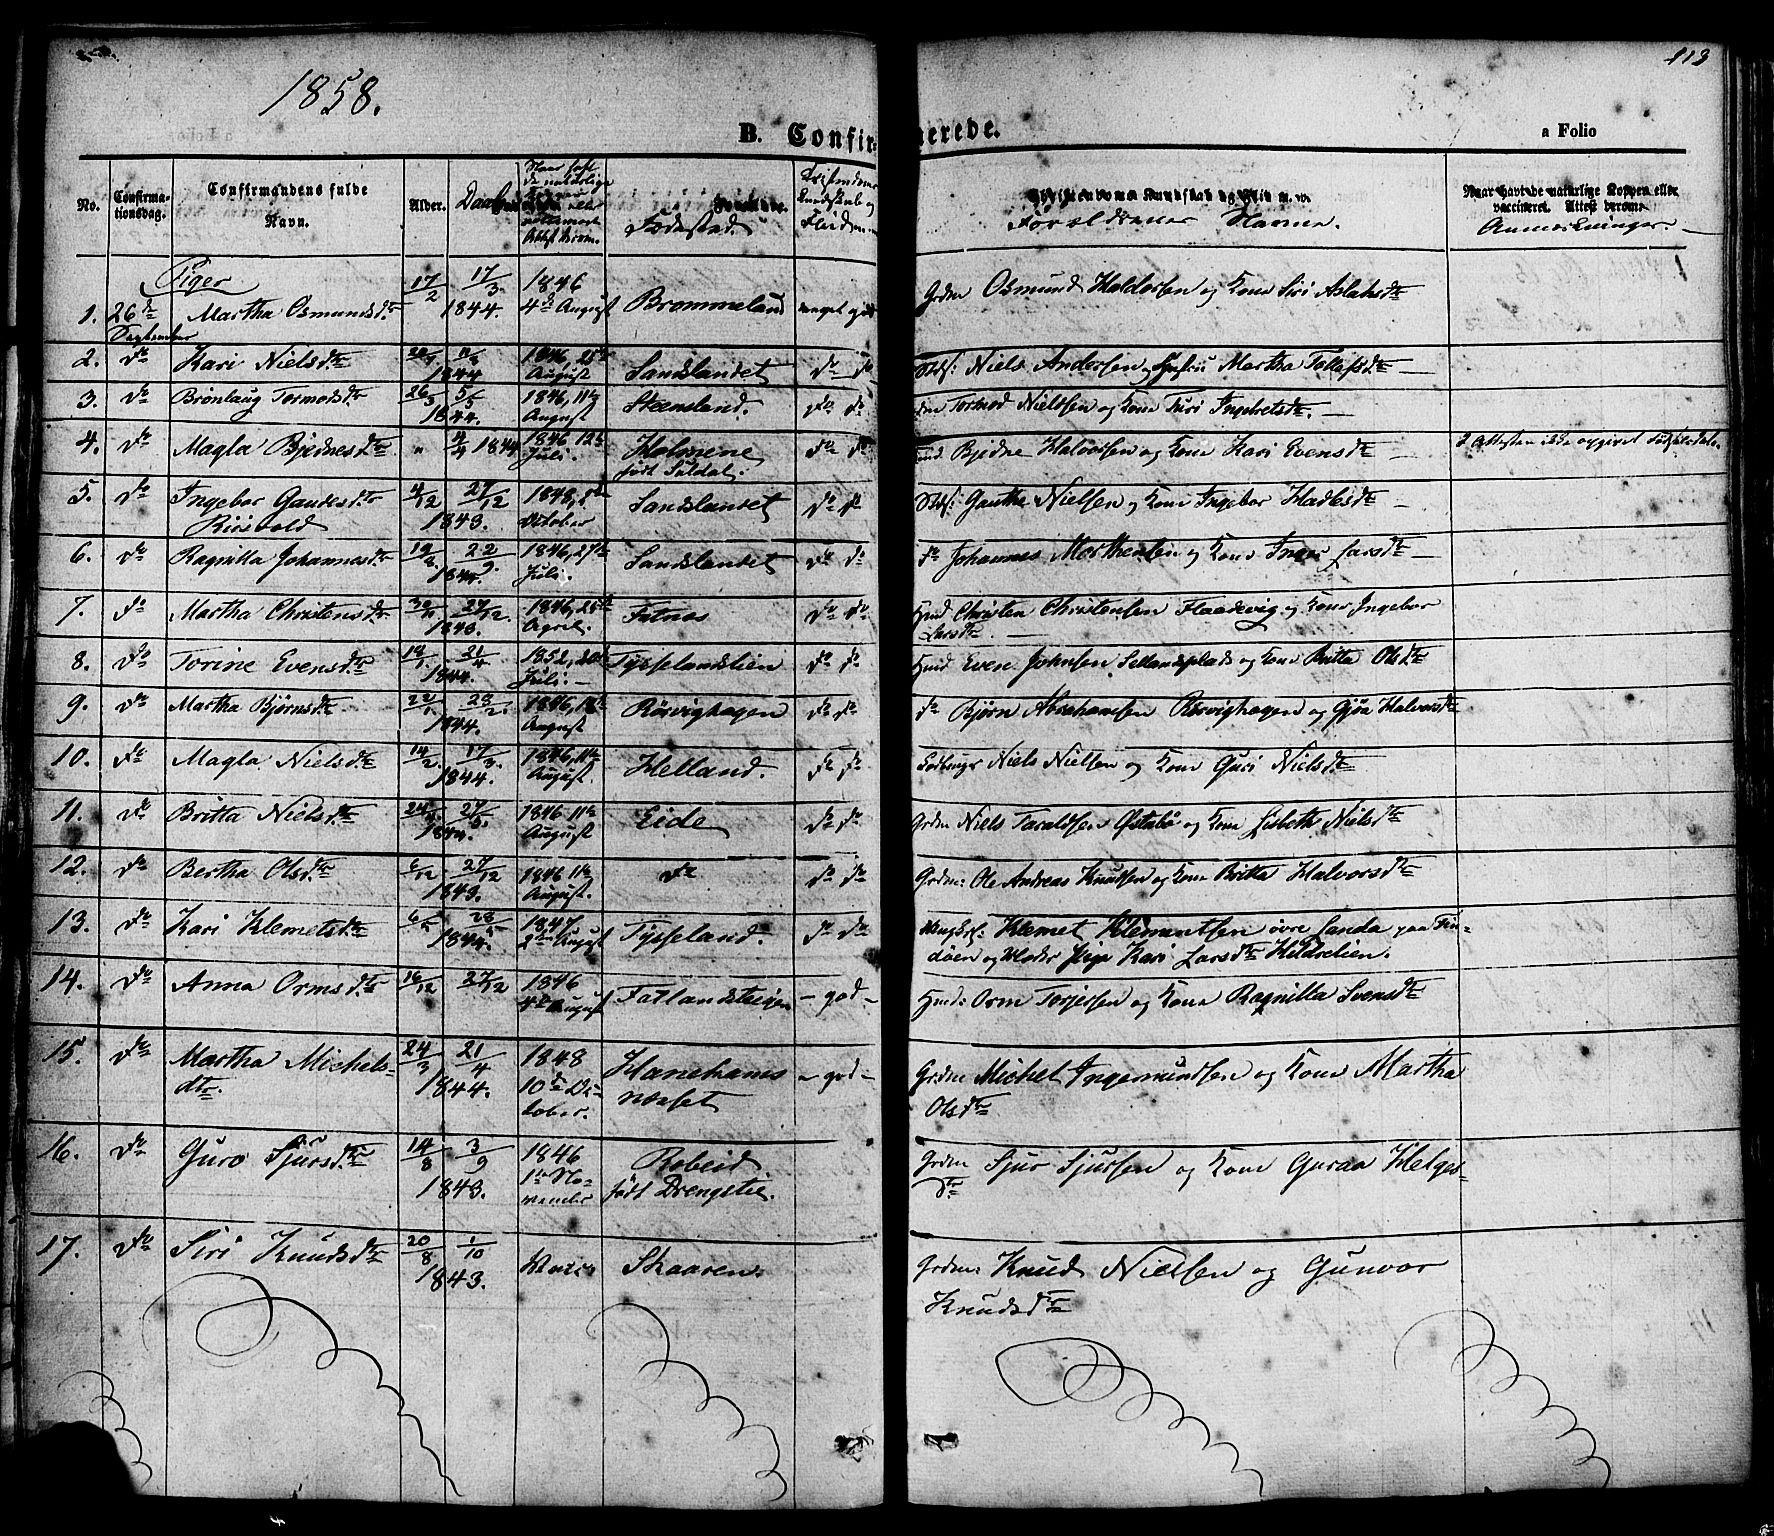 113
1858.
B. Confir- merede. a Folio
No. Confirma-tionsdag. Confirmandens fulde Navn. Alder. Daab Fødested. Forældrenes Navne. Anmærkninger
Piger
1. 26de September Martha Osmundsdtr 17/2 17/3 1844. 1846 4de August Brommeland meget god Grdm Osmund Haldorsen og Kone Siri Aslaksdtr
2. do Kari Nielsdtr 1844 1846, 25de August Sandslandet do do Niels Andersen og Hustru Martha Tollefsdtr
3. do Brønlaug Tormodsdtr 26/3 5/5 1844. 1846, 11te August Steensland. do do Tormod Nielssen og Kone Turi Ingebretsdtr.
4. do Magla Bjednesdtr " 4/4 1844 1846 12te Juli. Holmene født Suldal. do do Bjedne Halvorsen og Kone Kari Evensdtr
5. do Ingebor Gaudesdtr 4/12 27/12 1843. 1848, 8de October Sandslandet do do Gauthe Nielsen og Kone Ingebor Hadlesdtr
6. do Ragnilla Johannesdtr 19/8 22/9 1844. 1846, 27de Juli. Sandslandet do do do Johannes Morthensen og Kone Inger Larsdtr
7. do Martha Christensdtr 27/12 1843. 1846, 28de April. Fatnes do do Hmd Christen Christensen Flaadevig og Kone Ingebor Larsdtr.
8. do Torine Evensdtr 19/1 21/4 1844. 1852, 20de Juli. Tysselandslien do do Hmd Even Johnsen Sellandsplads og Kone Britta Olsdtr
9. do Martha Bjørnsdtr 22/1 23/2. 1844. 1846, 18de August Rørvighagen do do do Bjørn Abrahamsen Rørvighagen og Gjøa Halvorsdtr
10. do Magla Nielsdtr 14/2. 17/3. 1844. 1846, 11te August. Helland. do do Niels Nielsen og Kone Guri Nielsdtr.
11. do Britta Nielsdtr 1844. 1846 11te August Eide do do Grdm Niels Taraldsen Østabø og Kone Lisbeth Nielsdtr
12. do Bertha Olsdtr 6/12 27/12 1843. 1846 11te August. do do do Grdm: Ole Andreas Knutsen og Kone Britta Halvorsdtr
13. do Kari Klemetsdtr 6/5 28/5 1844. 1847 2den August Tysseland. do do Ungkrl: Klemet Klemmetsen øvre Landa paa Fin-
døen og Moder Pige Kari Larsdtr Hildrelien.
14. do Anna Ormsdtr 16/12 27/12 1846 4de August Fatlandsteigen - god - Hmd: Orm Torjersen og Kone Ragnilla Svensdtr
15. do Martha Michels-
dtr. 24/3 21/4 1844. 1848 10de Oc-
tober. Hanehams
næsset - god - Grdm Michel Ingemundsen og Kone Martha
Olsdtr
16. do Guro Sjursdtr 14/8 3/9 1843. 1846 1te No-
vember Robeid.
født Drengstie. Grdm Sjur Sjursen og Kone Guraa Helges-
dtr
17. do Siri Knudsdtr 20/8 1/10 1843. Skaaren. Grdm: Knud Nielsen og Gunvor
Knudsdtr